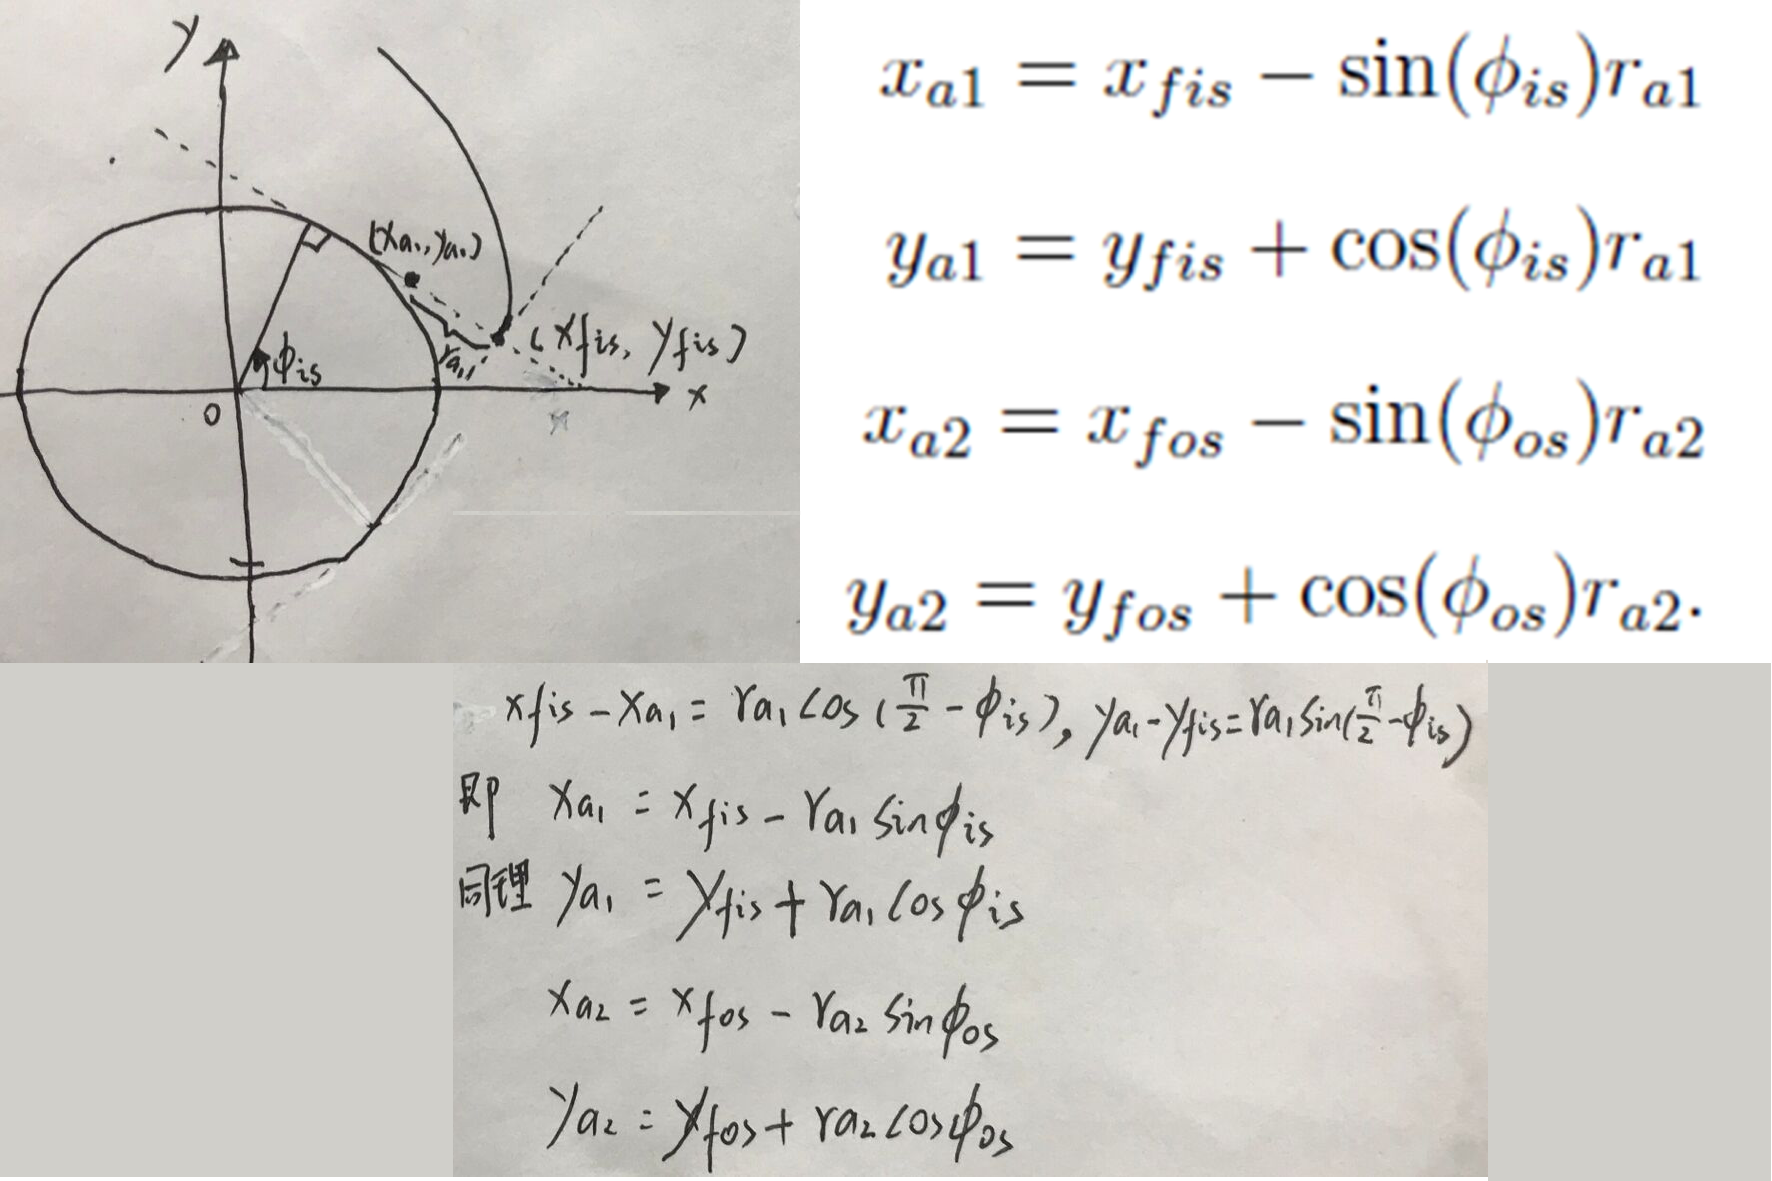 y
(xa₁, ya₁)
ra₁
(xfis, yfis)
ϕis
O
x
x_{a1} = x_{fis} − sin(ϕ_{is})r_{a1}
y_{a1} = y_{fis} + cos(ϕ_{is})r_{a1}
x_{a2} = x_{fos} − sin(ϕ_{os})r_{a2}
y_{a2} = y_{fos} + cos(ϕ_{os})r_{a2}.
xfis − xa₁ = ra₁ cos(π/2 − ϕis), ya₁ − yfis = ra₁ sin(π/2 − ϕis)
即 xa₁ = xfis − ra₁ sinϕis
同理 ya₁ = yfis + ra₁ cosϕis
xa₂ = xfos − ra₂ sinϕos
ya₂ = yfos + ra₂ cosϕos